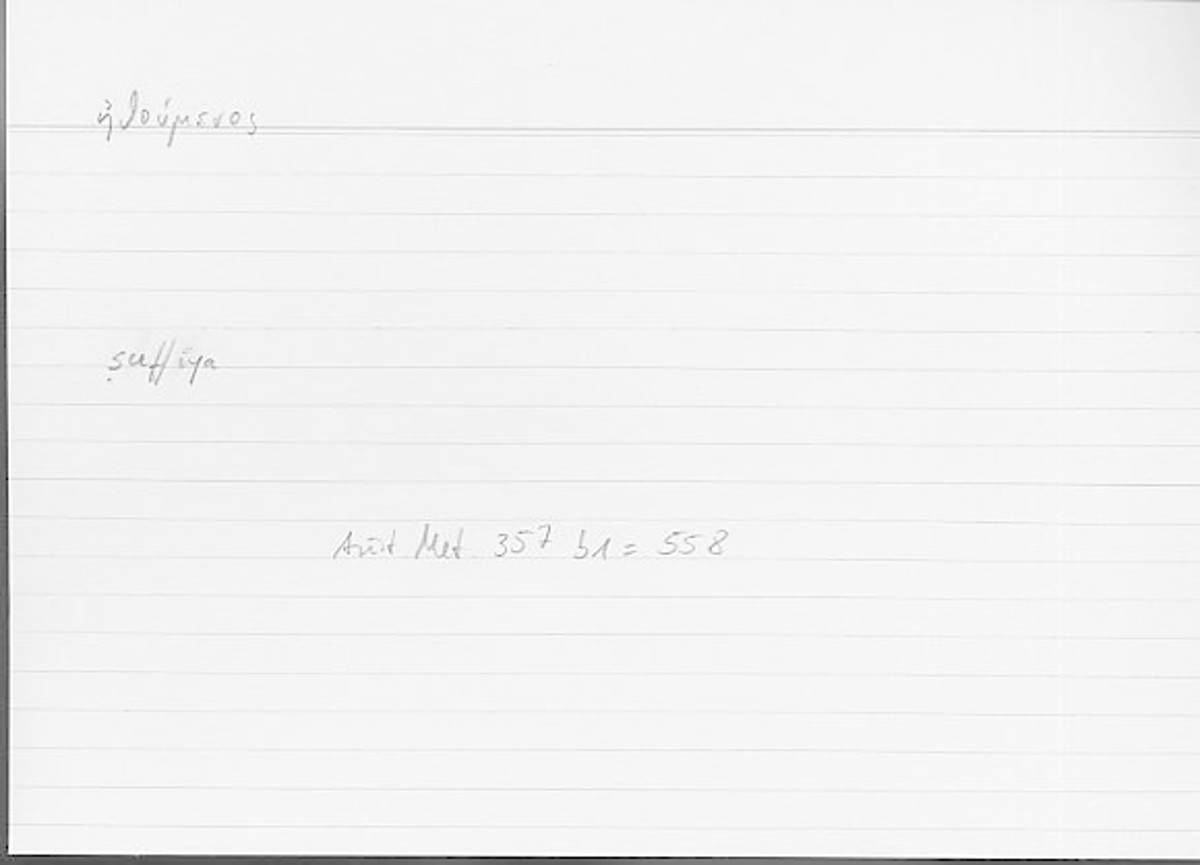 ἠθούμενος
ṣuffiya
Arist Met 357 b1 = 558